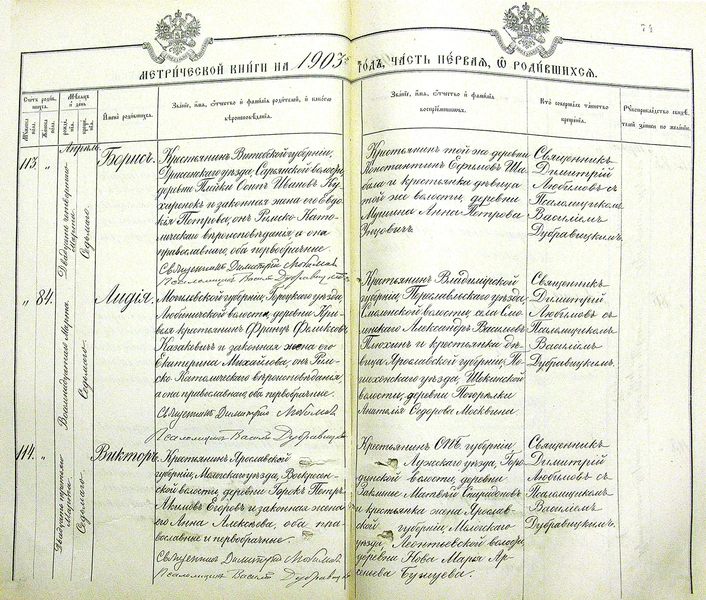 74
МЕТРИЧЕСКОЙ КНИГИ НА 1903й ГОДЪ, ЧАСТЬ ПЕРВАЯ, Ѡ РОДИВШИХСЯ.
Счетъ родив-шихся.
Мужеска пола.
Женска пола.
Мѣсяцъ и день
рожденія.
крещенія.
Имена родившихся.
Званіе, имя, отчество и фамилія родителей, и какого
вѣроисповѣданія.
Званіе, имя, отчество и фамилія
воспріемниковъ.
Кто совершалъ таинство
крещенія.
Рукоприкладство свидѣ-
телей записи по желанію.
113.
„
Апрѣль.
Двадцать четвертаго Марта
Седьмаго.
Борисъ.
Крестьянинъ Витебской губерніи,
Дриссенскаго уѣзда, Сарьянской волости,
деревни Ивановъ
и законная жена его
Петрова, онъ Римско-Като-
лическаго вѣроисповѣданія, а она
православнаго, оба первобрачные.
Священникъ Димитрій Любимовъ
Псаломщикъ Василій Дубравицкій
Крестьянинъ той же деревни
Константинъ Ефимовъ
и крестьянка дѣвица
той же волости, деревни
Анна Петрова
Священникъ
Димитрій
Любимовъ съ
Псаломщикомъ
Василіемъ
Дубравицкимъ.
„
84.
Восемнадцатаго Марта.
Седьмаго.
Лидія.
Могилевской губерніи, Горецкаго уѣзда,
волости, деревни
крестьянинъ Францъ Феликсовъ
Казакевичъ и законная жена его
Екатерина Михайлова, онъ Рим-
ско-Католическаго вѣроисповѣданія,
а она православнаго, оба первобрачные.
Священникъ Димитрій Любимовъ
Псаломщикъ Василій Дубравицкій
Крестьянинъ Владимірской
губерніи, Переславльскаго уѣзда,
Смоленской волости, села Смо-
ленскаго Александръ Васильевъ
Плохинъ и крестьянка дѣ-
вица Ярославской губерніи, По-
шехонскаго уѣзда,
волости, деревни
Анатолія Сидорова Москвина
Священникъ
Димитрій
Любимовъ съ
Псаломщикомъ
Василіемъ
Дубравицкимъ.
114.
„
Двадцать третьяго Марта
Седьмаго.
Викторъ.
Крестьянинъ Ярославской
губерніи, Мологскаго уѣзда, Воскресен-
ской волости, деревни Горокъ Петръ
Акимовъ Егоровъ и законная жена
его Анна Алексѣева, оба пра-
вославные и первобрачные.
Священникъ Димитрій Любимовъ
Псаломщикъ Василій Дубравицкій
Крестьянинъ СПБ. губерніи
Лужскаго уѣзда, Горо-
дунской волости, деревни
Заклинье Матвѣй Спиридоновъ
и крестьянка жена Ярослав-
ской губерніи, Мологскаго
уѣзда, Леонтьевской волости,
деревни Нова Марья Ар-
сеніева
Священникъ
Димитрій
Любимовъ съ
Псаломщикомъ
Василіемъ
Дубравицкимъ.